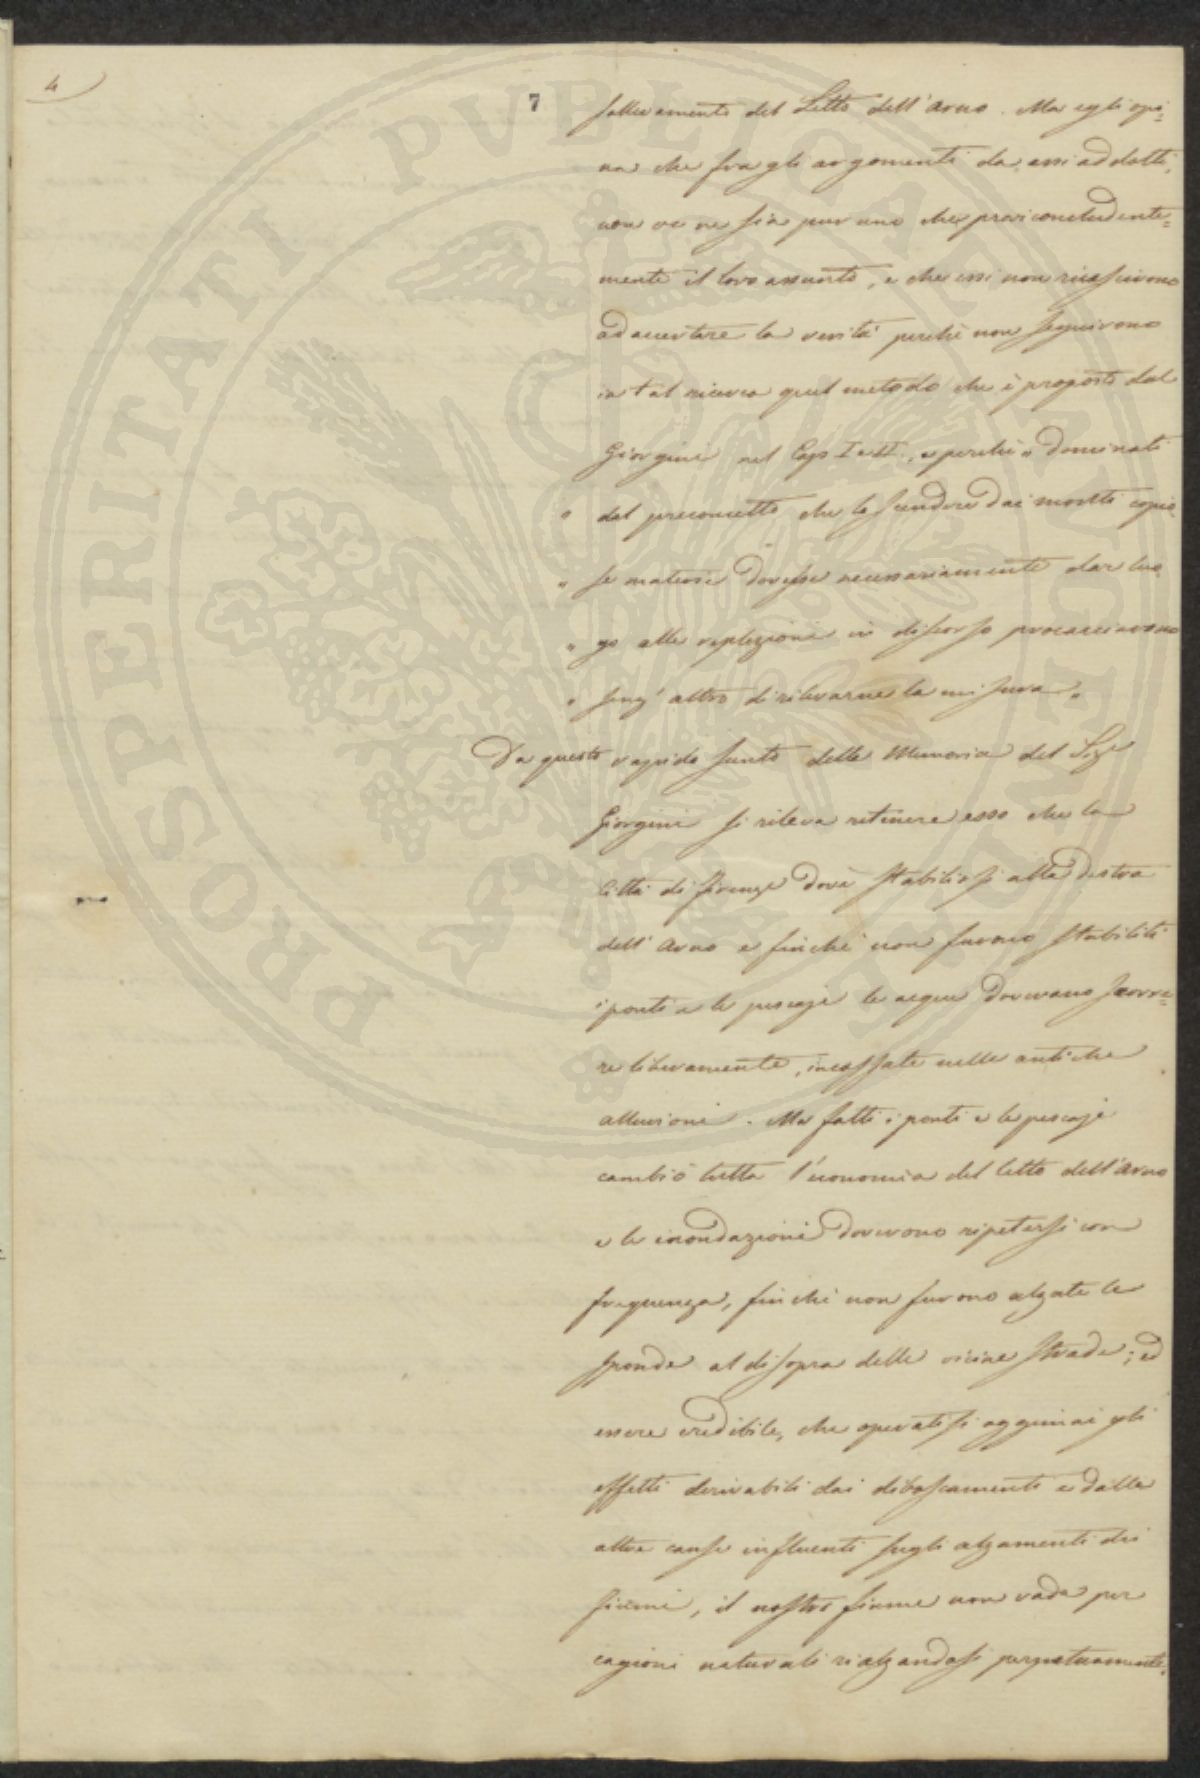 4
7
sollevamento del Letto dell'Arno. Ma egli opi=
na che fra gli argomenti da essi addotti,
non ve ne sia pur uno che provi concludente=
mente il loro assunto, e che essi non riuscirono
ad accertare la verità perchè non seguirono
in tal ricerca quel metodo che è proposto dal
Giorgini nel Cap. I e II., e perchè " dominati
" dal preconcetto che lo scendere dai monti copio
" se materie dovesse necessariamente dar luo
" go alle replezioni in discorso procacciavano
" senz'altro di rilevarne la misura "
Da questo rapido sunto della Memoria del Sig.e
Giorgini si rileva ritenere esso che la
Città di Firenze dovè stabilirsi alla destra
dell'Arno e finchè non furono stabiliti
i ponti e le pescaje le acque dovevano scorre=
re liberamente, incassate nelle antiche
alluvioni. Ma fatti i ponti e le pescaje
cambiò tutta l'economia del letto dell'Arno
e le inondazioni dovevono ripetersi con
frequenza, finchè non furono alzate le
sponde al disopra delle vicine strade; ed
essere credibile, che operatisi oggimai gli
effetti derivabili dai diboscamenti e dalle
altre cause influenti sugli alzamenti dei
fiumi, il nostro fiume non vada per
cagioni naturali rialzandosi perpetuamente.
PROSPERITATI PVBLICAE AVGENDAE